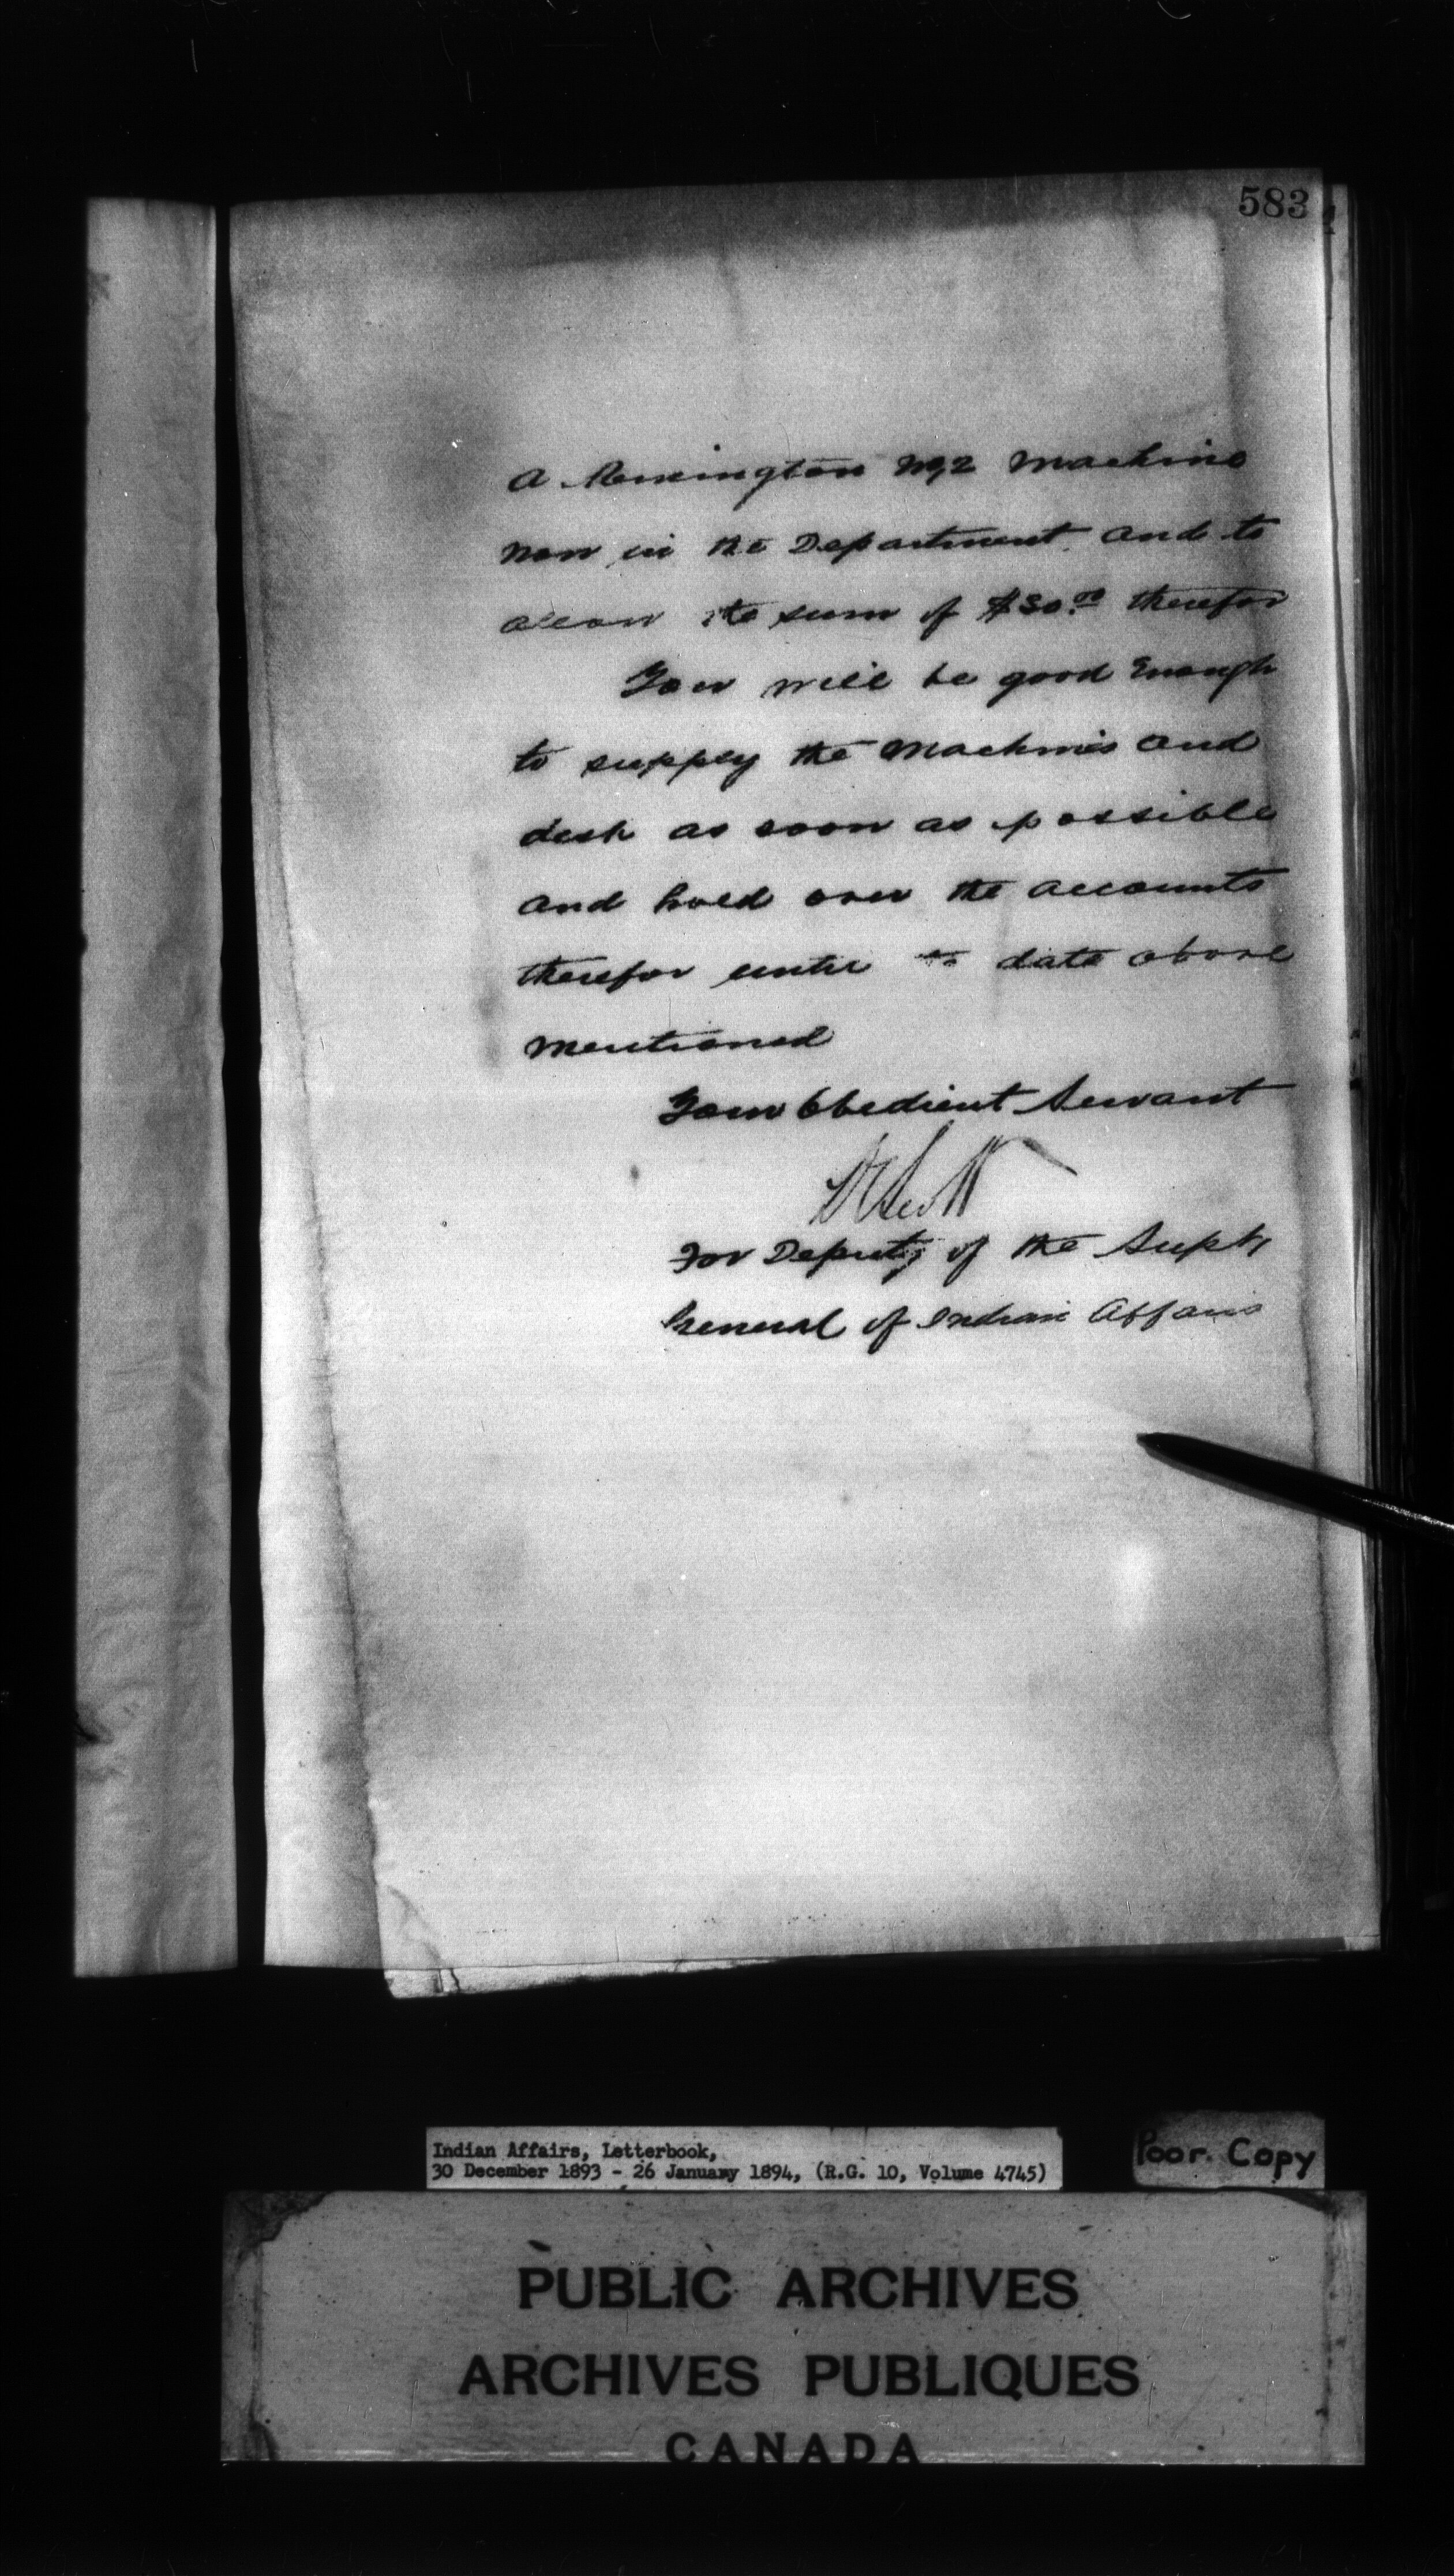 583
a Remington No 2 Machine
now in the Department and to
allow the sum of $30.00 therefor
Your will be good Enough
to supply the Machines and
desk as soon as possible
and hold over the accounts
therefor until date above
mentioned
Your Obedient Servant
DCScott
For Deputy of the Supt,
General of Indian Affairs
Indian Affairs, Letterbook,
30 December 1893 - 26 January 1894, (R.G. 10, Volume 4745)
Poor Copy
PUBLIC ARCHIVES
ARCHIVES PUBLIQUES
CANADA